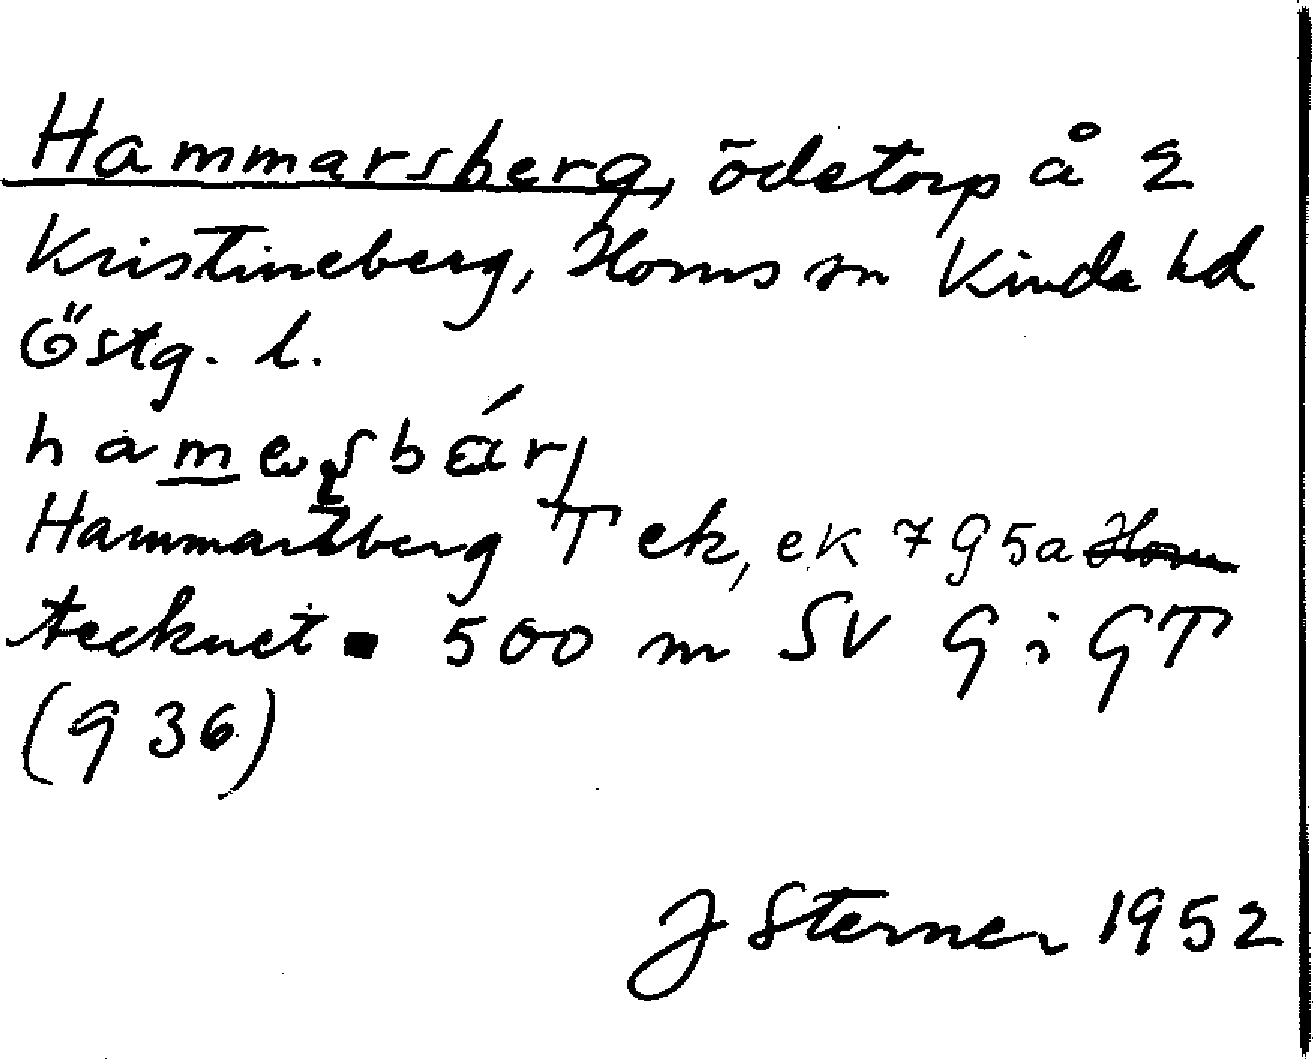 Hammarsberg, ödetorp å 2
Kristineberg, Horns sn Kinda hd
Östg. l.
Hammarsberg T ek, ek 7 9 5a
tecknet ▪ 500 m SV G i GT
(9 36)
J Sterner 1952